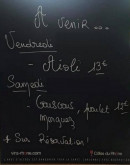 A venir...
Vendredi
- Aïoli 13€
Samedi
- Couscous poulet 13€
merguez
* Sur Réservation!